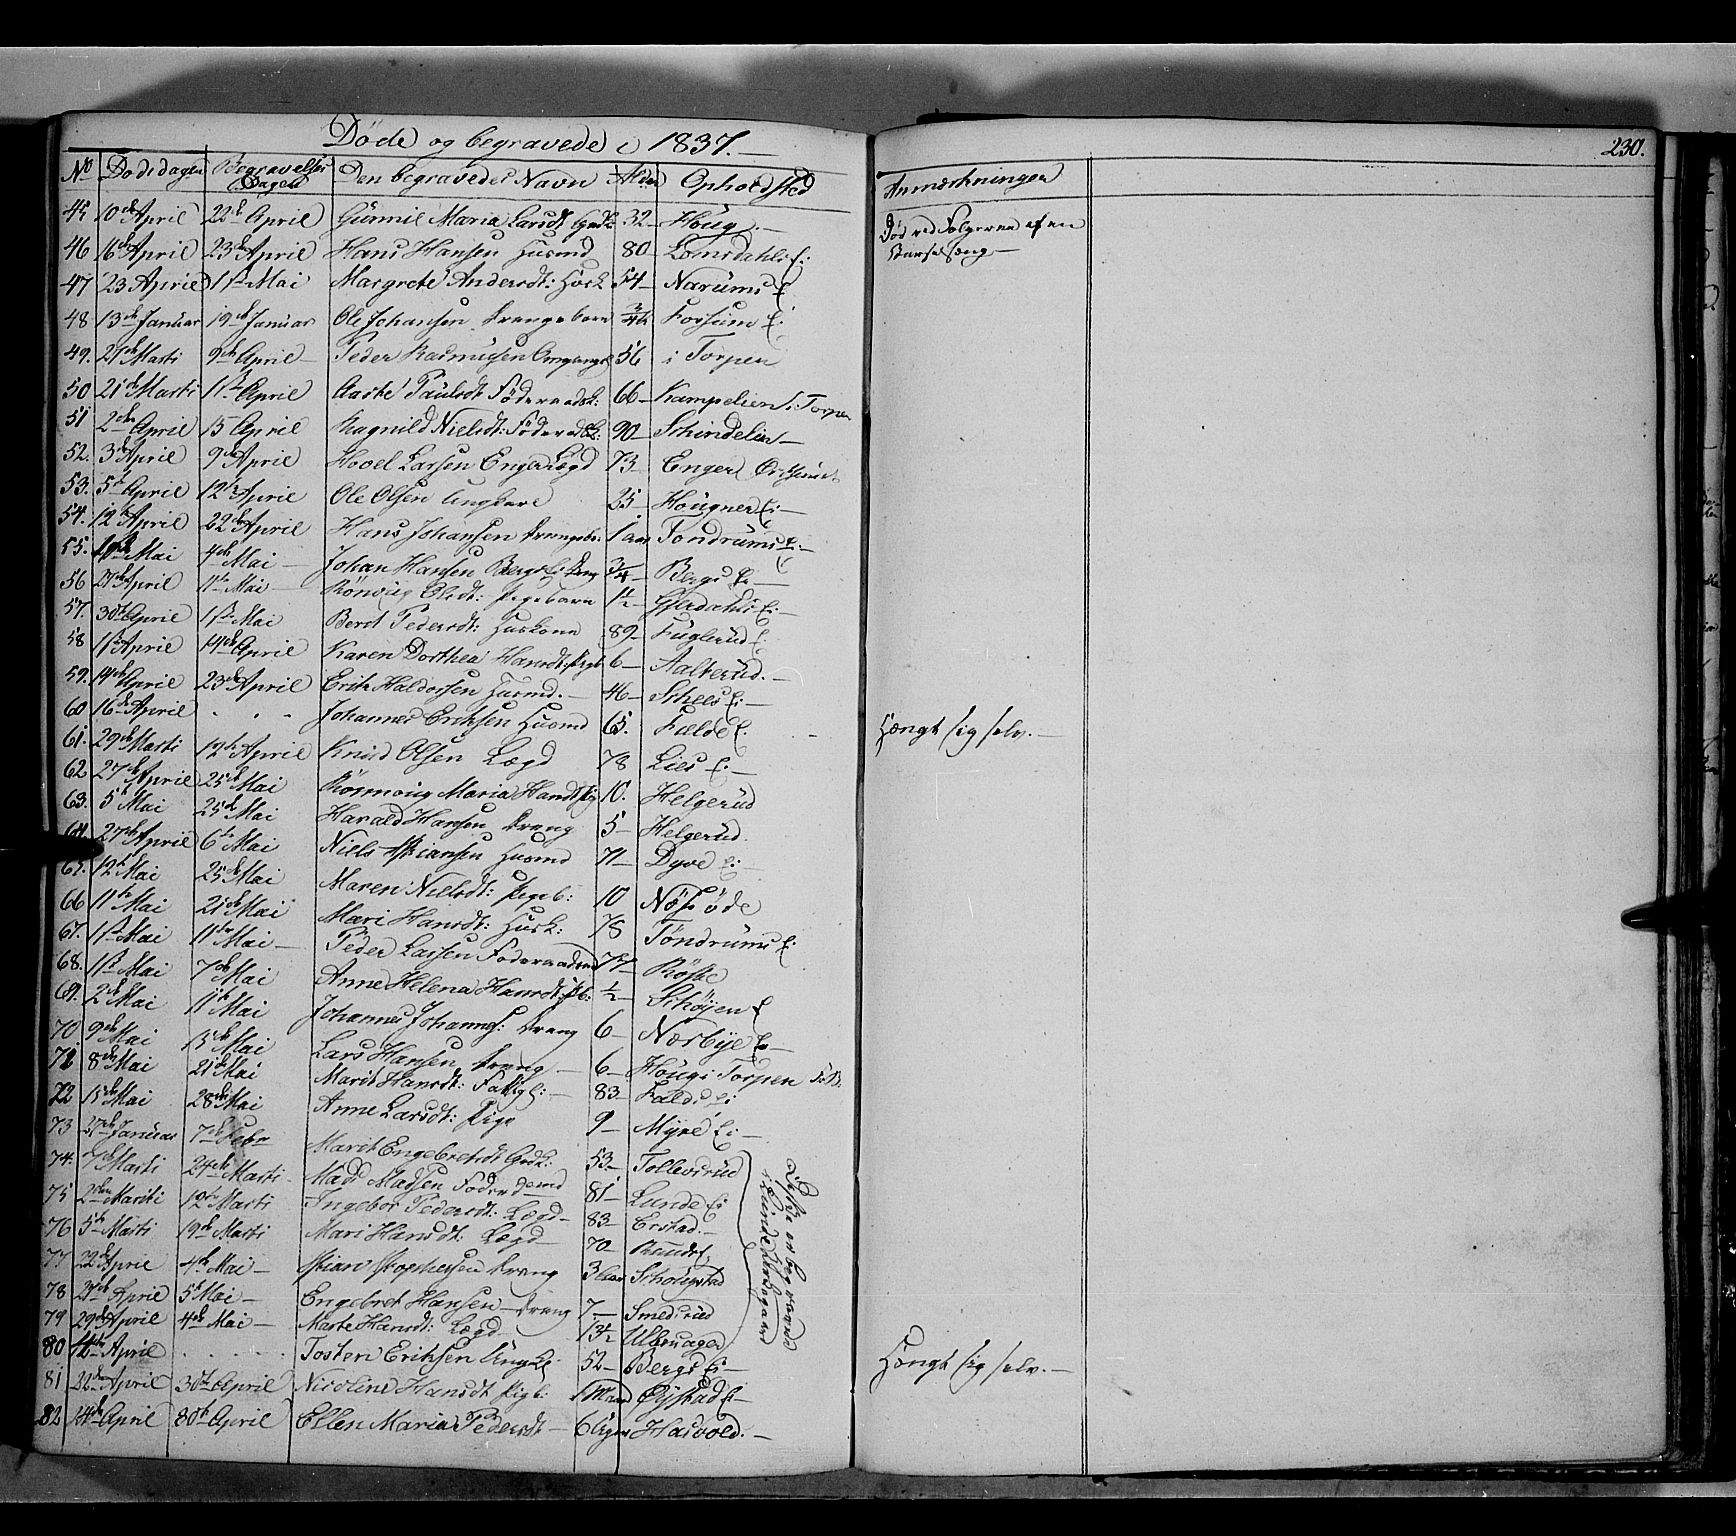 Døde og begravede i 1837.
230.
No Dødsdagen Begravelses Dagen Den begravedes Navn Alder Opholdsted
Anmærkninger
45 10de April 22de April Gunnil Maria Larsdt Gdk: 32 Houg
Død ved Følgerne af en
Barselseng
46 16de April 23de April Hans Hansen Husmd 80 Lomsdahls Ei:
47 23 April 11te Mai Margrete Andersdt: Husk 54 Narums E.
48 13de Januar 19de Januar Ole Johansen Drengebarn 3/4 Fossum Ei
49. 27de Marti 9de April Peder Rasmusen 56 i Torpen
50 21de Marti 1ste April Aaste Paulsdt Føderaadsk: 66 Kampelien i Torpen
51 2den April 15 April Ragnild Nielsdt: Føderadsk: 90 Schindelien
52. 3de April 9de April Hovel Larsen Enger Lægd 73 Enger
53. 5te April 12te April Ole Olsen Ungkarl 25 Hougner Ei:
54. 12te April 22de April Hans Johansen Drengeb: 1 aar Tondrums Ei:
55. Mai 4de Mai Johan Hansen Bergs Ei Dreng 3/4 Bergs Ei
56 27de April 11te Mai Rønnoug Olsdt: Pigebarn 1½ Gjerdahls Ei:
57. 30te April 1ste Mai Berit Pedersdt: Huskone 89 Fuglerud E.
58 11te April 14de April Karen Dorthea Hansdt: Pigeb 6 Aalterud.
59. 14de April 23de April Erik Haldorsen Husmd. 46 Schees Ei:
60 16de April . . Johannes Eriksen Husmd 65. Fælde E.
Hængt sig selv.
61. 29de Marti 19de April Knud Olsen Lægd 78 Lies Ei:
62 27de April 25de Mai Rønnoug Maria Hansdt Pig 10. Helgerud
63. 5te Mai 25de Mai Harald Hansen Dreng 5 Helgerud.
64. 27de April 6te Mai Niels Kstiansen Husmd 71 Dyve Ei:
65. 12te Mai 25de Mai Maren Nielsdt: Pigeb: 10 Nøs øde
66 11te Mai 21de Mai Mari Hansdt: Husk: 78 Tøndrums Ei
67. 1ste Mai 11te Mai Peder Larsen Føderaadsmd 77 Røste
68. 1ste Mai 7de Mai Anne Helena Hansdt: Pb: ½ Schøyen E
69. 2de Mai 11te Mai Johannes Johanness: Dreng 6 Næsbye Ei
70 9de Mai 15de Mai Lars Hansen Dreng 6 Houg i Torpen
71 8de Mai 21de Mai Marit Hansdt: Fattigl: 83 Fælds Ei
72 15de Mai 28de Mai Anne Larsdt: Pige 9 Myre Ei
73 27de Januar 7de Febr Marit Engebretsdt Gdk: 53 Tollevsrud
74. 7de Marti 24de Marti Mads Madsen Føderdsmd 81 Lunde Ei
75 2den Marti 12te Marti Ingebor Pedersdt: Lægd 83 Erstad
76 5te Marti 19de Marti Mari Hansdt: Lægd 70 Ruuds
77 22de April 4de Mai Kstian Kstophersen Dreng 3 Aar Schougstad
78 27de April 5te Mai Engebret Hansen Dreng 7 Smedsrud
79 29de April 4de Mai Marte Hansdt: Lægd 73½ Ulsnager
Disse er begravede
i Lunde Kirkegaard
80 14de April . . . . Tosten Eriksen Ungk 52 Bergs Ei
Hængt sig selv.
81 22de April 30te April Nicoline Hansdt Pigb: 1 Maan Øystad Ei
82 14de April 30te April Ellen Maria Pedersdt 6 Uger Haivold.